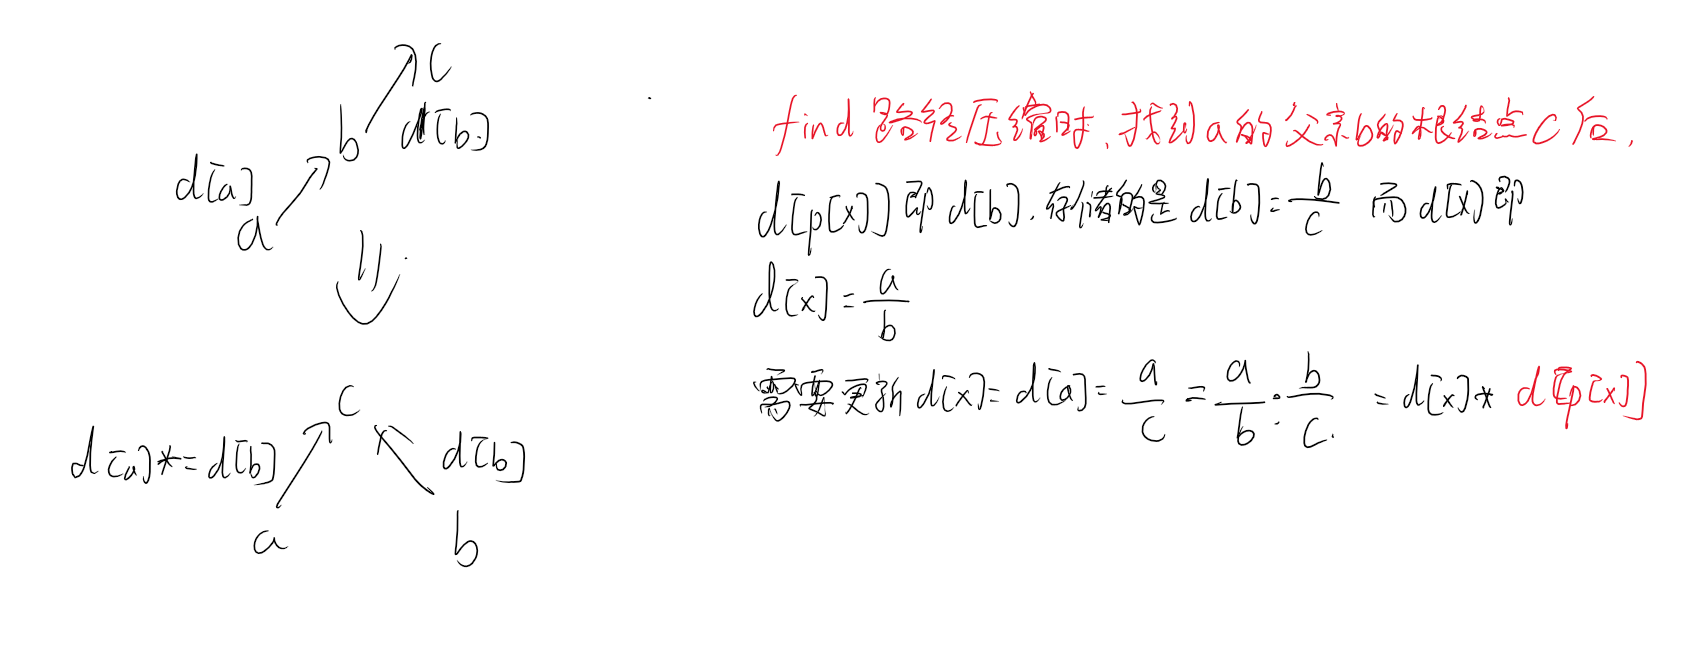 c
b
d[b]
d[a]
a
c
d[a]*=d[b]
d[b]
a
b
find 路径压缩时,找到a的父亲b的根结点C后,
d[p[x]]即d[b],存储的是d[b]=b/c 而d[x]即
d[x]=a/b
需要更新d[x]=d[a]=a/c=a/b·b/c=d[x]*d[p[x]]